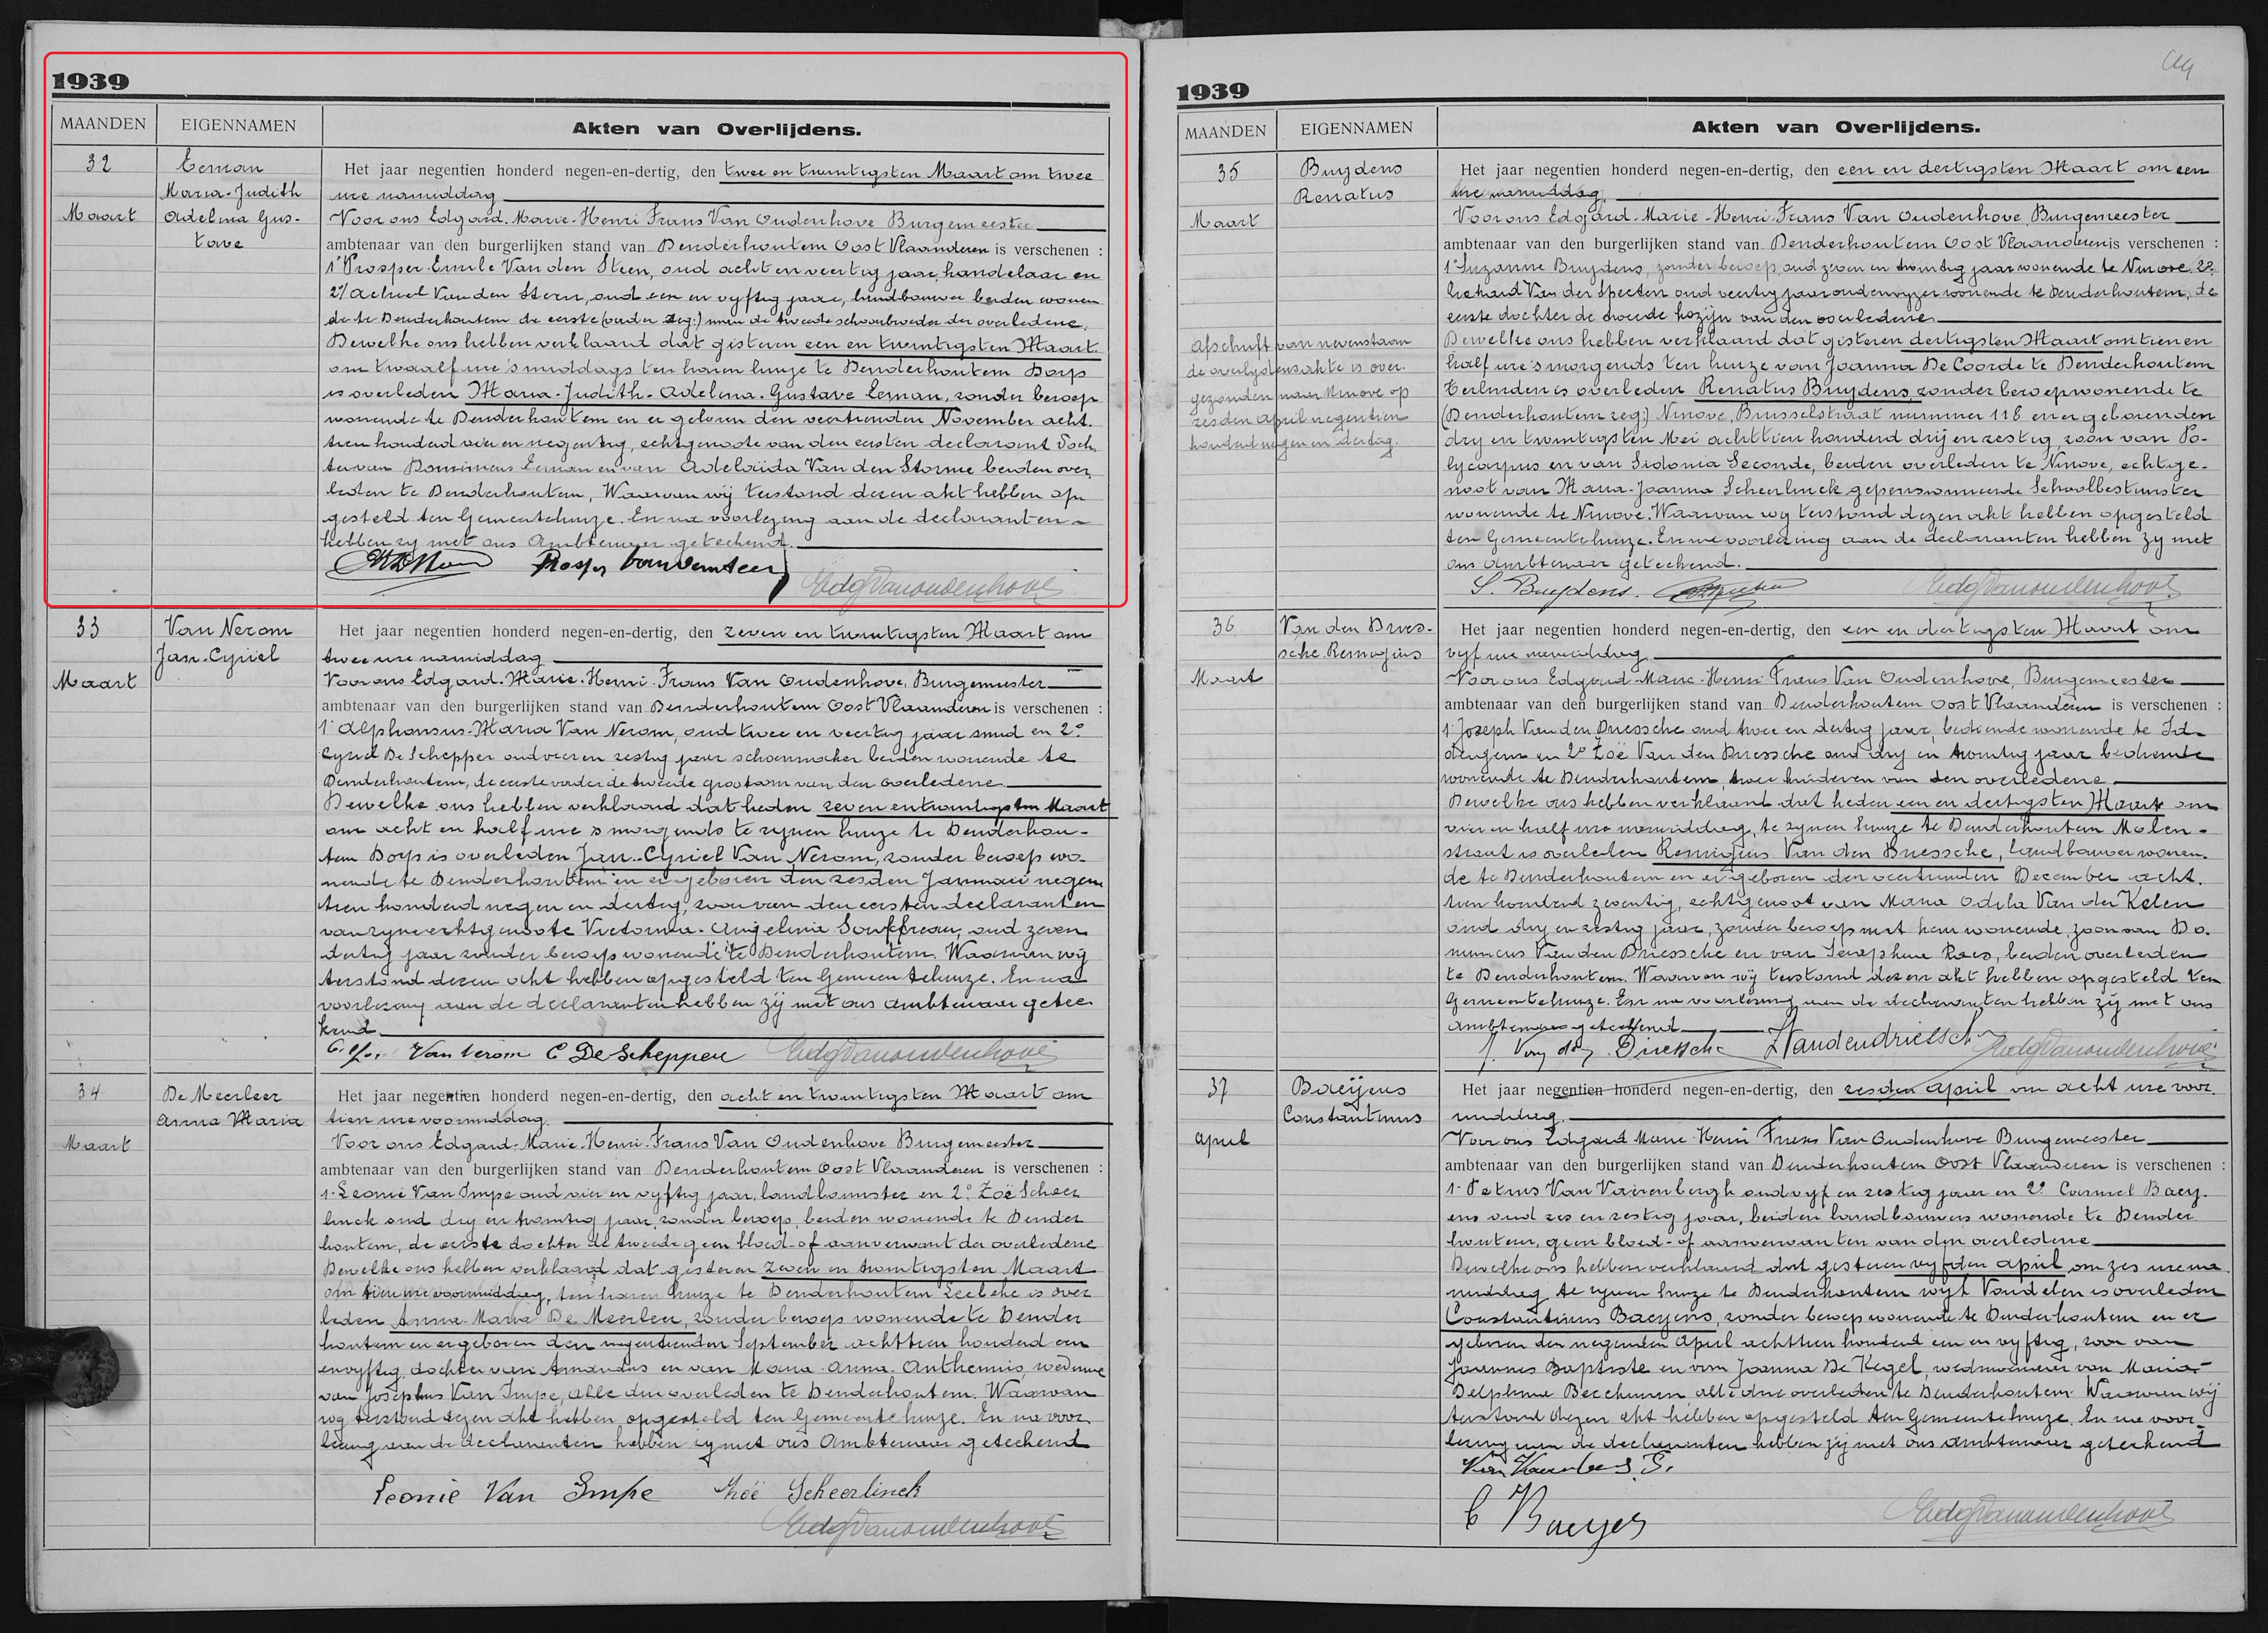 1939
MAANDEN EIGENNAMEN Akten van Overlijdens.
32 Eeman Het jaar negentien honderd negen-en-dertig, den twee en twintigsten Maart om twee
Maria-Judith ure namiddag
Maart Adelina Gus- Voor ons Edgard-Marie-Henri Frans Van Oudenhove Burgemeester
tave ambtenaar van den burgerlijken stand van Denderhoutem Oost Vlaanderen is verschenen :
1° Prosper-Emile Van den Steen, oud acht en veertig jaar, handelaar en
2°/ Achiel Van den Steen, oud een en vyftig jaar, landbouwer beiden wonen
de te Denderhoutem de eerste (vader zeg:) man de tweede schoonbroeder der overledene.
Dewelke ons hebben verklaard dat gisteren een en twintigsten Maart
om twaalf ure 's middags ten haren huize te Denderhoutem Dorp
is overleden Maria-Judith-Adelina-Gustave Eeman, zonder beroep
wonende te Denderhoutem en er geboren den veertienden November acht.
tien honderd vier en negentig, echtgenoote van den eersten declarant doch
ter van Dominicus Eeman en van Adelaïda Van den Storme beiden over
leden te Denderhoutem, Waarvan wij terstond dezen akt hebben op
gesteld ten Gemeentehuize. En na voorlezing aan de declaranten
hebben zy met ons Ambtenaar geteekend.
Prosper Vandensteen EdgVanoudenhove
33 Van Nerom Het jaar negentien honderd negen-en-dertig, den zeven en twintigsten Maart om
Jan-Cyriel twee ure namiddag
Maart Voor ons Edgard-Marie-Henri-Frans Van Oudenhove, Burgemeester
ambtenaar van den burgerlijken stand van Denderhoutem Oost Vlaanderen is verschenen :
1° Alphonsus-Maria Van Nerom, oud twee en veertig jaar smid en 2°
Cyriel De Schepper oud vier en zestig jaar schoenmaker beiden wonende te
Denderhoutem, de eerste vader de tweede grootoom van den overledene
Dewelke ons hebben verklaard dat heden zeven en twintigsten Maart
om acht en half ure 's morgends te zynen huize te Denderhou-
tem Dorp is overleden Jan-Cyriel Van Nerom, zonder beroep wo-
nende te Denderhoutem en er geboren den zesden Januari negen
tien honderd negen en dertig, zoon van den eersten declarant en
van zyne echtgenoote Victorina-Angelina Souffreau, oud zeven
dertig jaar zonder beroep wonende te Denderhoutem. Waarvan wij
terstond dezen akt hebben opgesteld ten Gemeentehuize. En na
voorlezing aan de declaranten hebben zij met ons ambtenaar getee
kend
Van Nerom C De Schepper EdgVanoudenhove
34 De Meerleer Het jaar negentien honderd negen-en-dertig, den acht en twintigsten Maart om
Anna Maria tien ure voormiddag.
Maart Voor ons Edgard-Marie-Henri-Frans Van Oudenhove Burgemeester
ambtenaar van den burgerlijken stand van Denderhoutem Oost Vlaanderen is verschenen :
1° Leonie Van Impe oud vier en vyftig jaar, landbouwster en 2° Zoë Scheer
linck oud dry en twintig jaar, zonder beroep, beiden wonende te Dender
houtem, de eerste dochter de tweede geen bloed- of aanverwant der overledene
Dewelke ons hebben verklaard dat gisteren zeven en twintigsten Maart
om tien ure voormiddag, ten haren huize te Denderhoutem Leebeke is over
leden Anna-Maria De Meerleer, zonder beroep wonende te Dender
houtem en er geboren den negentienden September achttien honderd een
en vyftig, dochter van Amandus en van Maria-Anna-Anthennis, weduwe
van Josephus Van Impe, alle drie overleden te Denderhoutem. Waarvan
wy terstond dezen akt hebben opgesteld ten Gemeentehuize. En na voor
lezing aan de declaranten hebben zy met ons Ambtenaar geteekend
Leonie Van Impe Zhöe Scheerlinck
EdgVanoudenhove
1939
MAANDEN EIGENNAMEN Akten van Overlijdens.
35 Buydens Het jaar negentien honderd negen-en-dertig, den een en dertigsten Maart om een
Renatus ure namiddag
Maart Voor ons Edgard-Marie-Henri-Frans Van Oudenhove Burgemeester
ambtenaar van den burgerlijken stand van Denderhoutem Oost Vlaanderen is verschenen :
1° Suzanne Buydens, zonder beroep, oud zeven en twintig jaar wonende te Ninove 2°
Richard Van der Specten oud veertig jaar onderwyzer wonende te Denderhoutem, de
eerste dochter de tweede kozijn van den overledene
Afschrift van nevenstaan Dewelke ons hebben verklaard dat gisteren dertigsten Maart om tien en
de overlydensakte is over. half ure 's morgends ten huize van Joanna De Coorde te Denderhoutem
gezonden naar Ninove op Terlinden is overleden Renatus Buydens, zonder beroep wonende te
zesden April negentien (Denderhoutem zeg:) Ninove, Brusselstraat nummer 118 en er geboren den
honderd negen en dertig. dry en twintigsten Mei achttien honderd drij en zestig, zoon van Po-
lycarpus en van Sidonia Seconde, beiden overleden te Ninove, echtge-
noot van Maria-Joanna Scheerlinck gepensionneerde Schoolbestuurster
wonende te Ninove. Waarvan wy terstond dezen akt hebben opgesteld
ten Gemeentehuize. En na voorlezing aan de declaranten hebben zy met
ons ambtenaar geteekend.
S. Buydens. EdgVanoudenhove
36 Van den Dries- Het jaar negentien honderd negen-en-dertig, den een en dertigsten Maart om
sche Remigius vyf ure namiddag
Maart Voor ons Edgard-Marie-Henri Frans Van Oudenhove, Burgemeester
ambtenaar van den burgerlijken stand van Denderhoutem Oost Vlaanderen is verschenen :
1° Joseph Van den Driessche oud twee en dertig jaar, bediende wonende te Id-
dergem en 2° Zoë Van den Driessche oud dry en twintig jaar bediende
wonende te Denderhoutem, twee kinderen van den overledene
Dewelke ons hebben verklaard dat heden een en dertigsten Maart om
vier en half ure namiddag, te zynen huize te Denderhoutem Molen-
straat is overleden Remigius Van den Driessche, landbouwer wonen.
de te Denderhoutem en er geboren den veertienden December acht.
tien honderd zeventig, echtgenoot van Maria Odila Van der Kelen
oud dry en zestig jaar, zonder beroep met hem wonende, zoon van Do.
minicus Van den Driessche en van Seraphine Raes, beiden overleden
te Denderhoutem. Waarvan wij terstond dezen akt hebben opgesteld ten
Gemeentehuize. En na voorlezing aan de declaranten hebben zij met ons
ambtenaar geteekend
J. Van den Driessche ZVandendriessche EdgVanoudenhove
37 Baeyens Het jaar negentien honderd negen-en-dertig, den zesden April om acht ure voor
Constantinus middag.
April Voor ons Edgard Marie-Henri Frans Van Oudenhove Burgemeester
ambtenaar van den burgerlijken stand van Denderhoutem Oost Vlaanderen is verschenen :
1° Petrus Van Vaerenbergh oud vyf en zestig jaar en 2° Camiel Baey.
ens oud zes en zestig jaar, beiden landbouwers wonende te Dender
houtem, geen bloed- of aanverwanten van den overledene
Dewelke ons hebben verklaard dat gisteren vyfden April om zes ure na
middag te zynen huize te Denderhoutem wyk Vondelen is overleden
Constantinus Baeyens, zonder beroep wonende te Denderhoutem en er
geboren den negenden April achttien honderd een en vyftig, zoon van
Joannes Baptiste en van Joanna De Kegel, weduwnaar van Maria-
Delphina Beeckman alle drie overleden te Denderhoutem. Waarvan wij
terstond dezen akt hebben opgesteld ten Gemeentehuize. En na voor
lezing aan de declaranten hebben zij met ons ambtenaar geteekend
C Baeyes EdgVanoudenhove